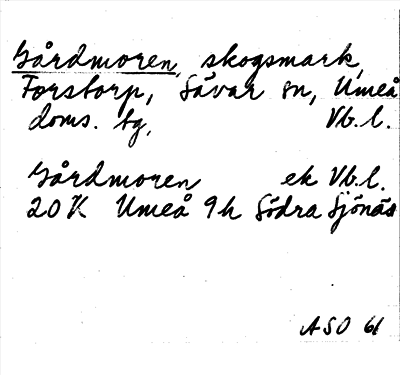 Gårdmoren, skogsmark,
Forstorp, Sävar sn, Umeå
doms. tg, Vb.l.
Gårdmoren ek Vb.l.
20 K Umeå 9h Södra Sjönäs
ASO 61